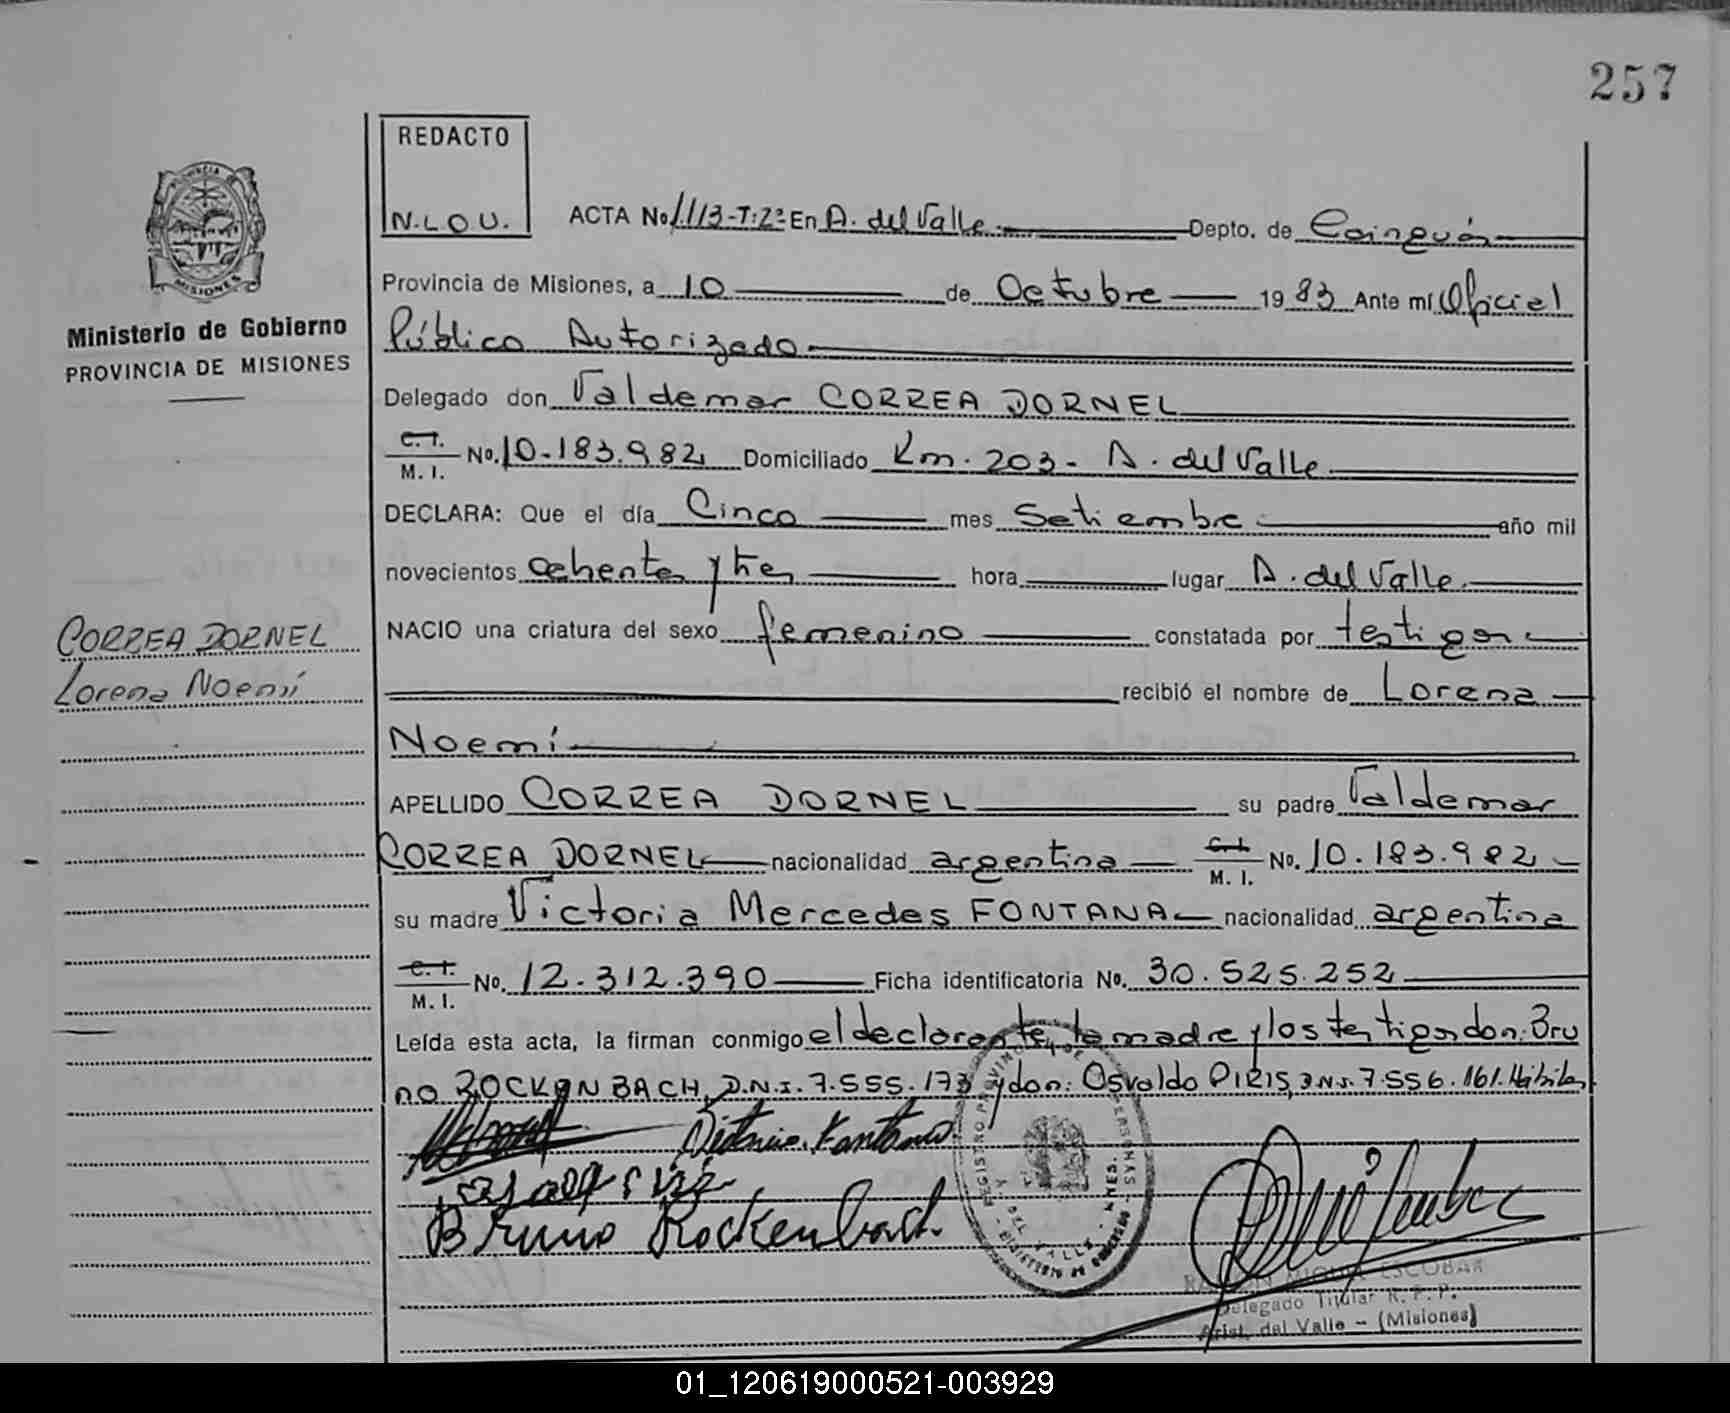 257
REDACTO
N.L.O.U.
ACTA No 1.113-T:2º En A. del Valle Depto. de Cainguás
Provincia de Misiones, a 10 de Octubre 1983 Ante mí Oficial
Público Autorizado
PROVINCIA DE MISIONES
Ministerio de Gobierno
PROVINCIA DE MISIONES
Delegado don Valdemar CORREA DORNEL
C. I.
M. I. No. 10.183.982 Domiciliado Km. 203 - A. del Valle
DECLARA: Que el día Cinco mes Setiembre año mil
novecientos ochenta y tres hora lugar A. del Valle
NACIO una criatura del sexo femenino constatada por testigos
recibió el nombre de Lorena
Noemí
CORREA DORNEL
Lorena Noemí
APELLIDO CORREA DORNEL su padre Valdemar
CORREA DORNEL nacionalidad argentina C. I. M. I. No. 10.183.982
su madre Victoria Mercedes FONTANA nacionalidad argentina
C. I.
M. I. No. 12.312.390 Ficha identificatoria No. 30.525.252
Leída esta acta, la firman conmigo el declarante, la madre y los testigos don: Bru
no ROCKENBACH, D.N.I. 7.555.173 y don: Osvaldo PIRIS, D.N.I. 7.556.161.
Victoria Fontana
Bruno Rockenbach
REGISTRO PROVINCIAL DE LAS PERSONAS - MNES.
A. DEL VALLE
MINISTERIO DE GOBIERNO
RAMON MIGUEL ESCOBAR
Delegado Titular R. P. P.
Arist. del Valle - (Misiones)
01_120619000521-003929